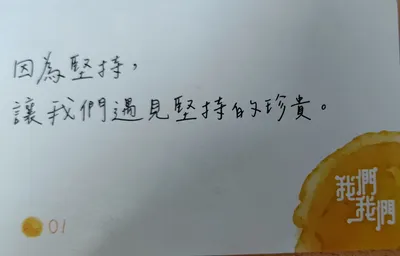 因為堅持，
讓我們遇見堅持的珍貴。
我們
我們
01